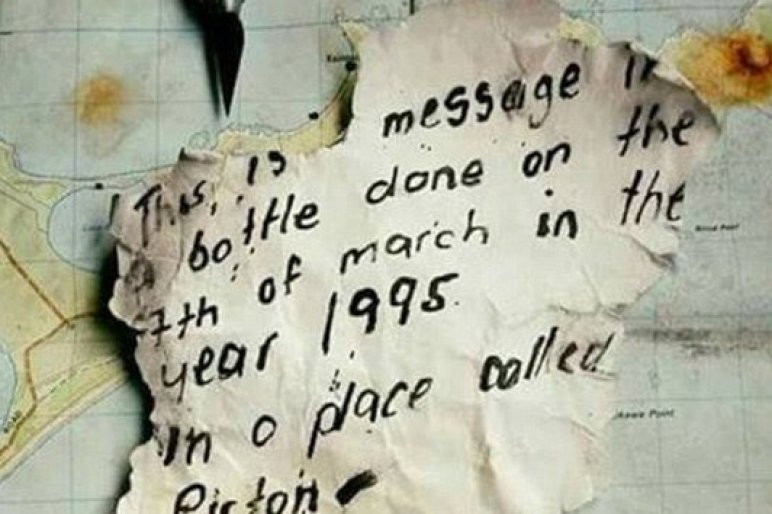 This, is message in
a bottle done on the
7th of march in the
year 1995.
in a place called
Picton
Point